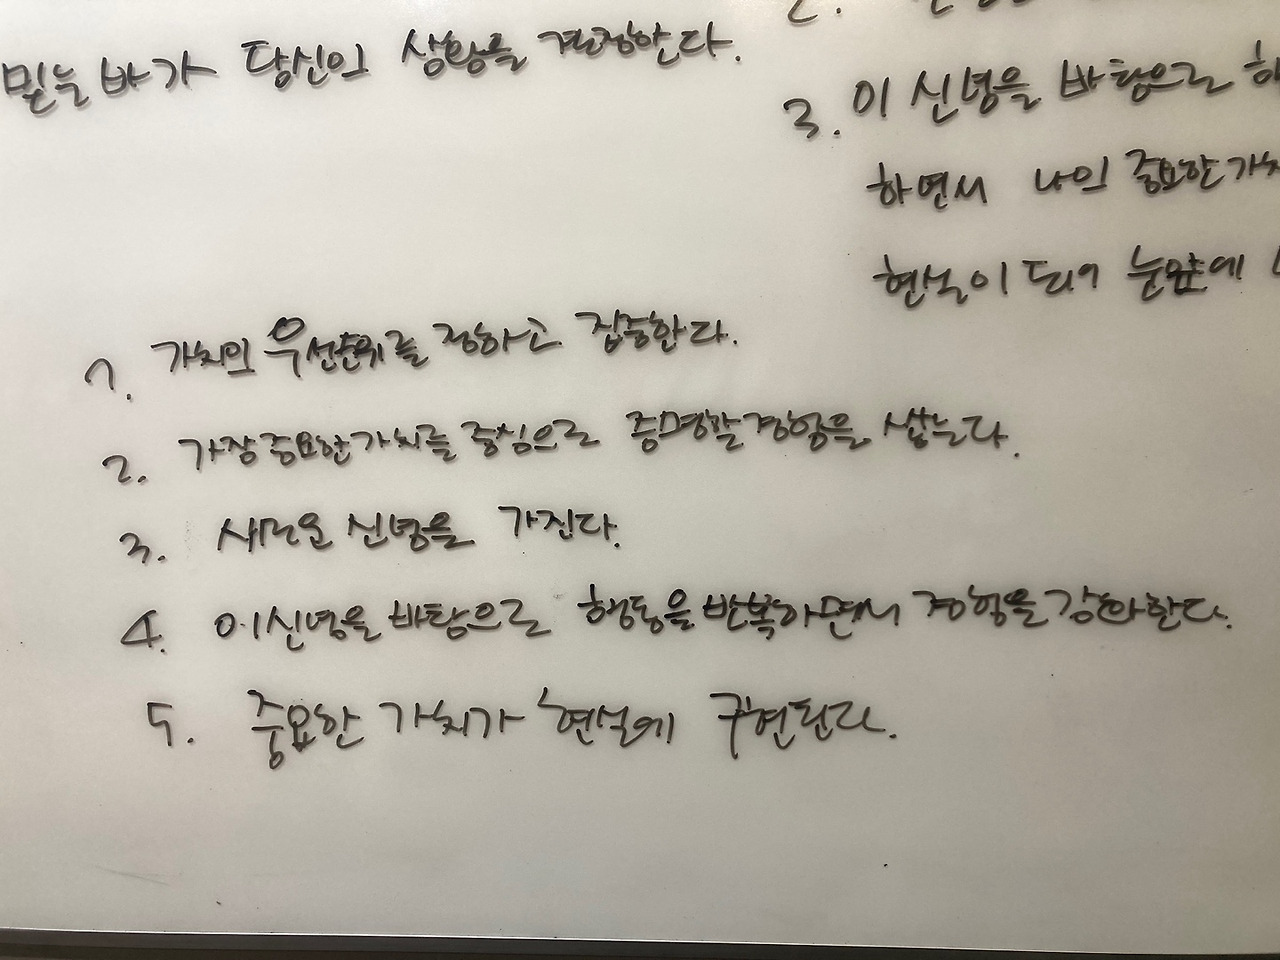 믿는 바가 당신의 상황을 결정한다.
2.
3. 이 신념을 바탕으로
하면서 나의 중요한 가치
현실이 되어 눈앞에
1. 가치의 우선순위를 정하고 집중한다.
2. 가장 중요한 가치를 중심으로 증명할 경험을 쌓는다.
3. 새로운 신념을 가진다.
4. 이 신념을 바탕으로 행동을 반복하면서 경험을 강화한다.
5. 중요한 가치가 현실에 구현된다.